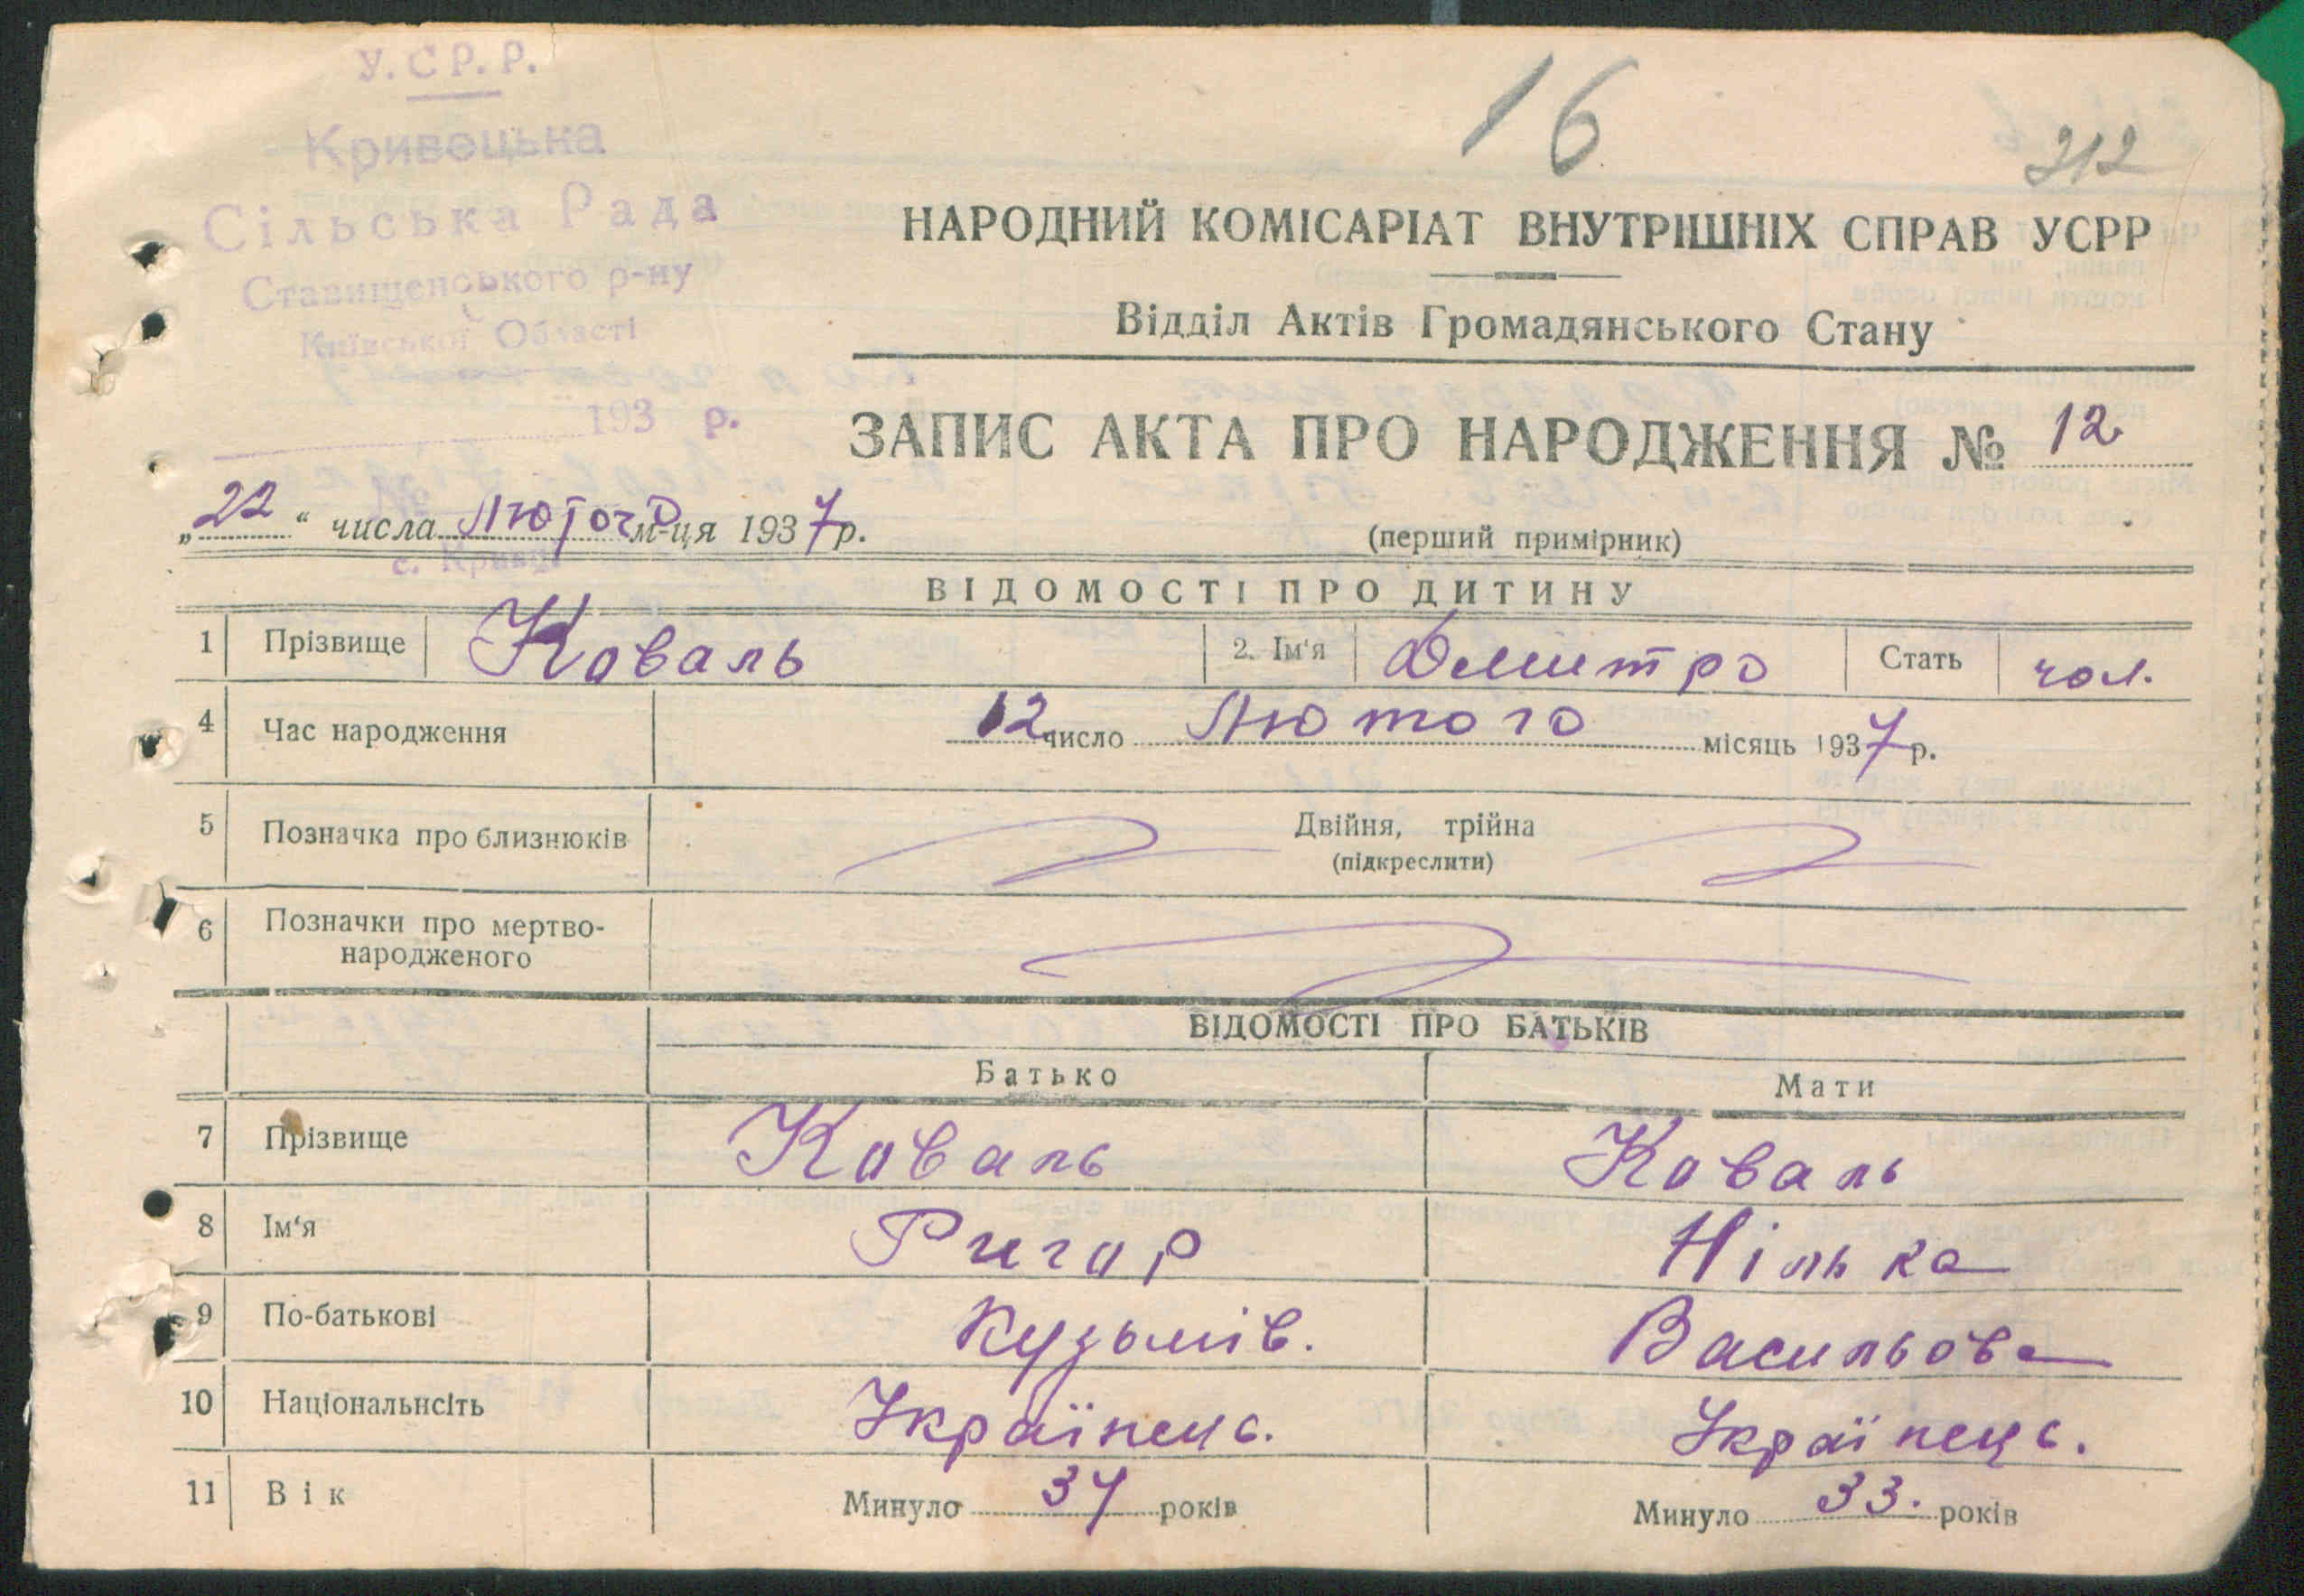 У.С Р. Р.
Кривецька
Сільська Рада
Ставищенського р-ну
Київської Області
193 р.
с. Кривець
16
212
НАРОДНИЙ КОМІСАРІАТ ВНУТРІШНІХ СПРАВ УСРР
Відділ Актів Громадянського Стану
ЗАПИС АКТА ПРО НАРОДЖЕННЯ № 12
„22“ числа Лютого м-ця 1937 р.
(перший примірник)
ВІДОМОСТІ ПРО ДИТИНУ
1 Прізвище Коваль 2. Ім'я Дмитро Стать чол.
4 Час народження 12 число Лютого місяць 1937 р.
5 Позначка про близнюків Двійня, трійна
(підкреслити)
6 Позначки про мертво-
народженого
ВІДОМОСТІ ПРО БАТЬКІВ
Батько Мати
7 Прізвище Коваль Коваль
8 Ім'я Ригор Нілька
9 По-батькові Кузьмів. Васильова
10 Національнсіть Українець. Українець.
11 Вік Минуло 34 років Минуло 33. років